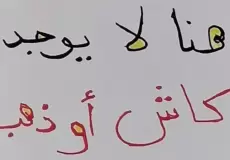 هنا لا يوجد
كاش أو ذهب